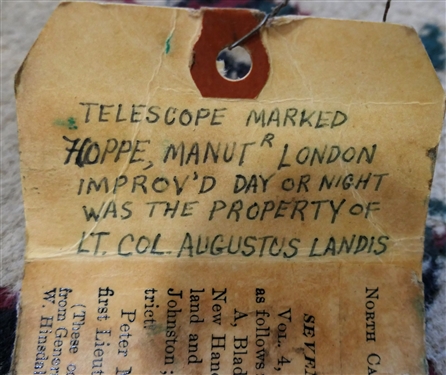 TELESCOPE MARKED
HOPPE, MANUTᴿ LONDON
IMPROV'D DAY OR NIGHT
WAS THE PROPERTY OF
LT. COL. AUGUSTUS LANDIS
NORTH CA
SEVE
VOL. 4,
as follows
A, Blad
New Han
land and
Johnston;
trict.
Peter M
first Lieut
(These o
from Gener
W Hinsdal